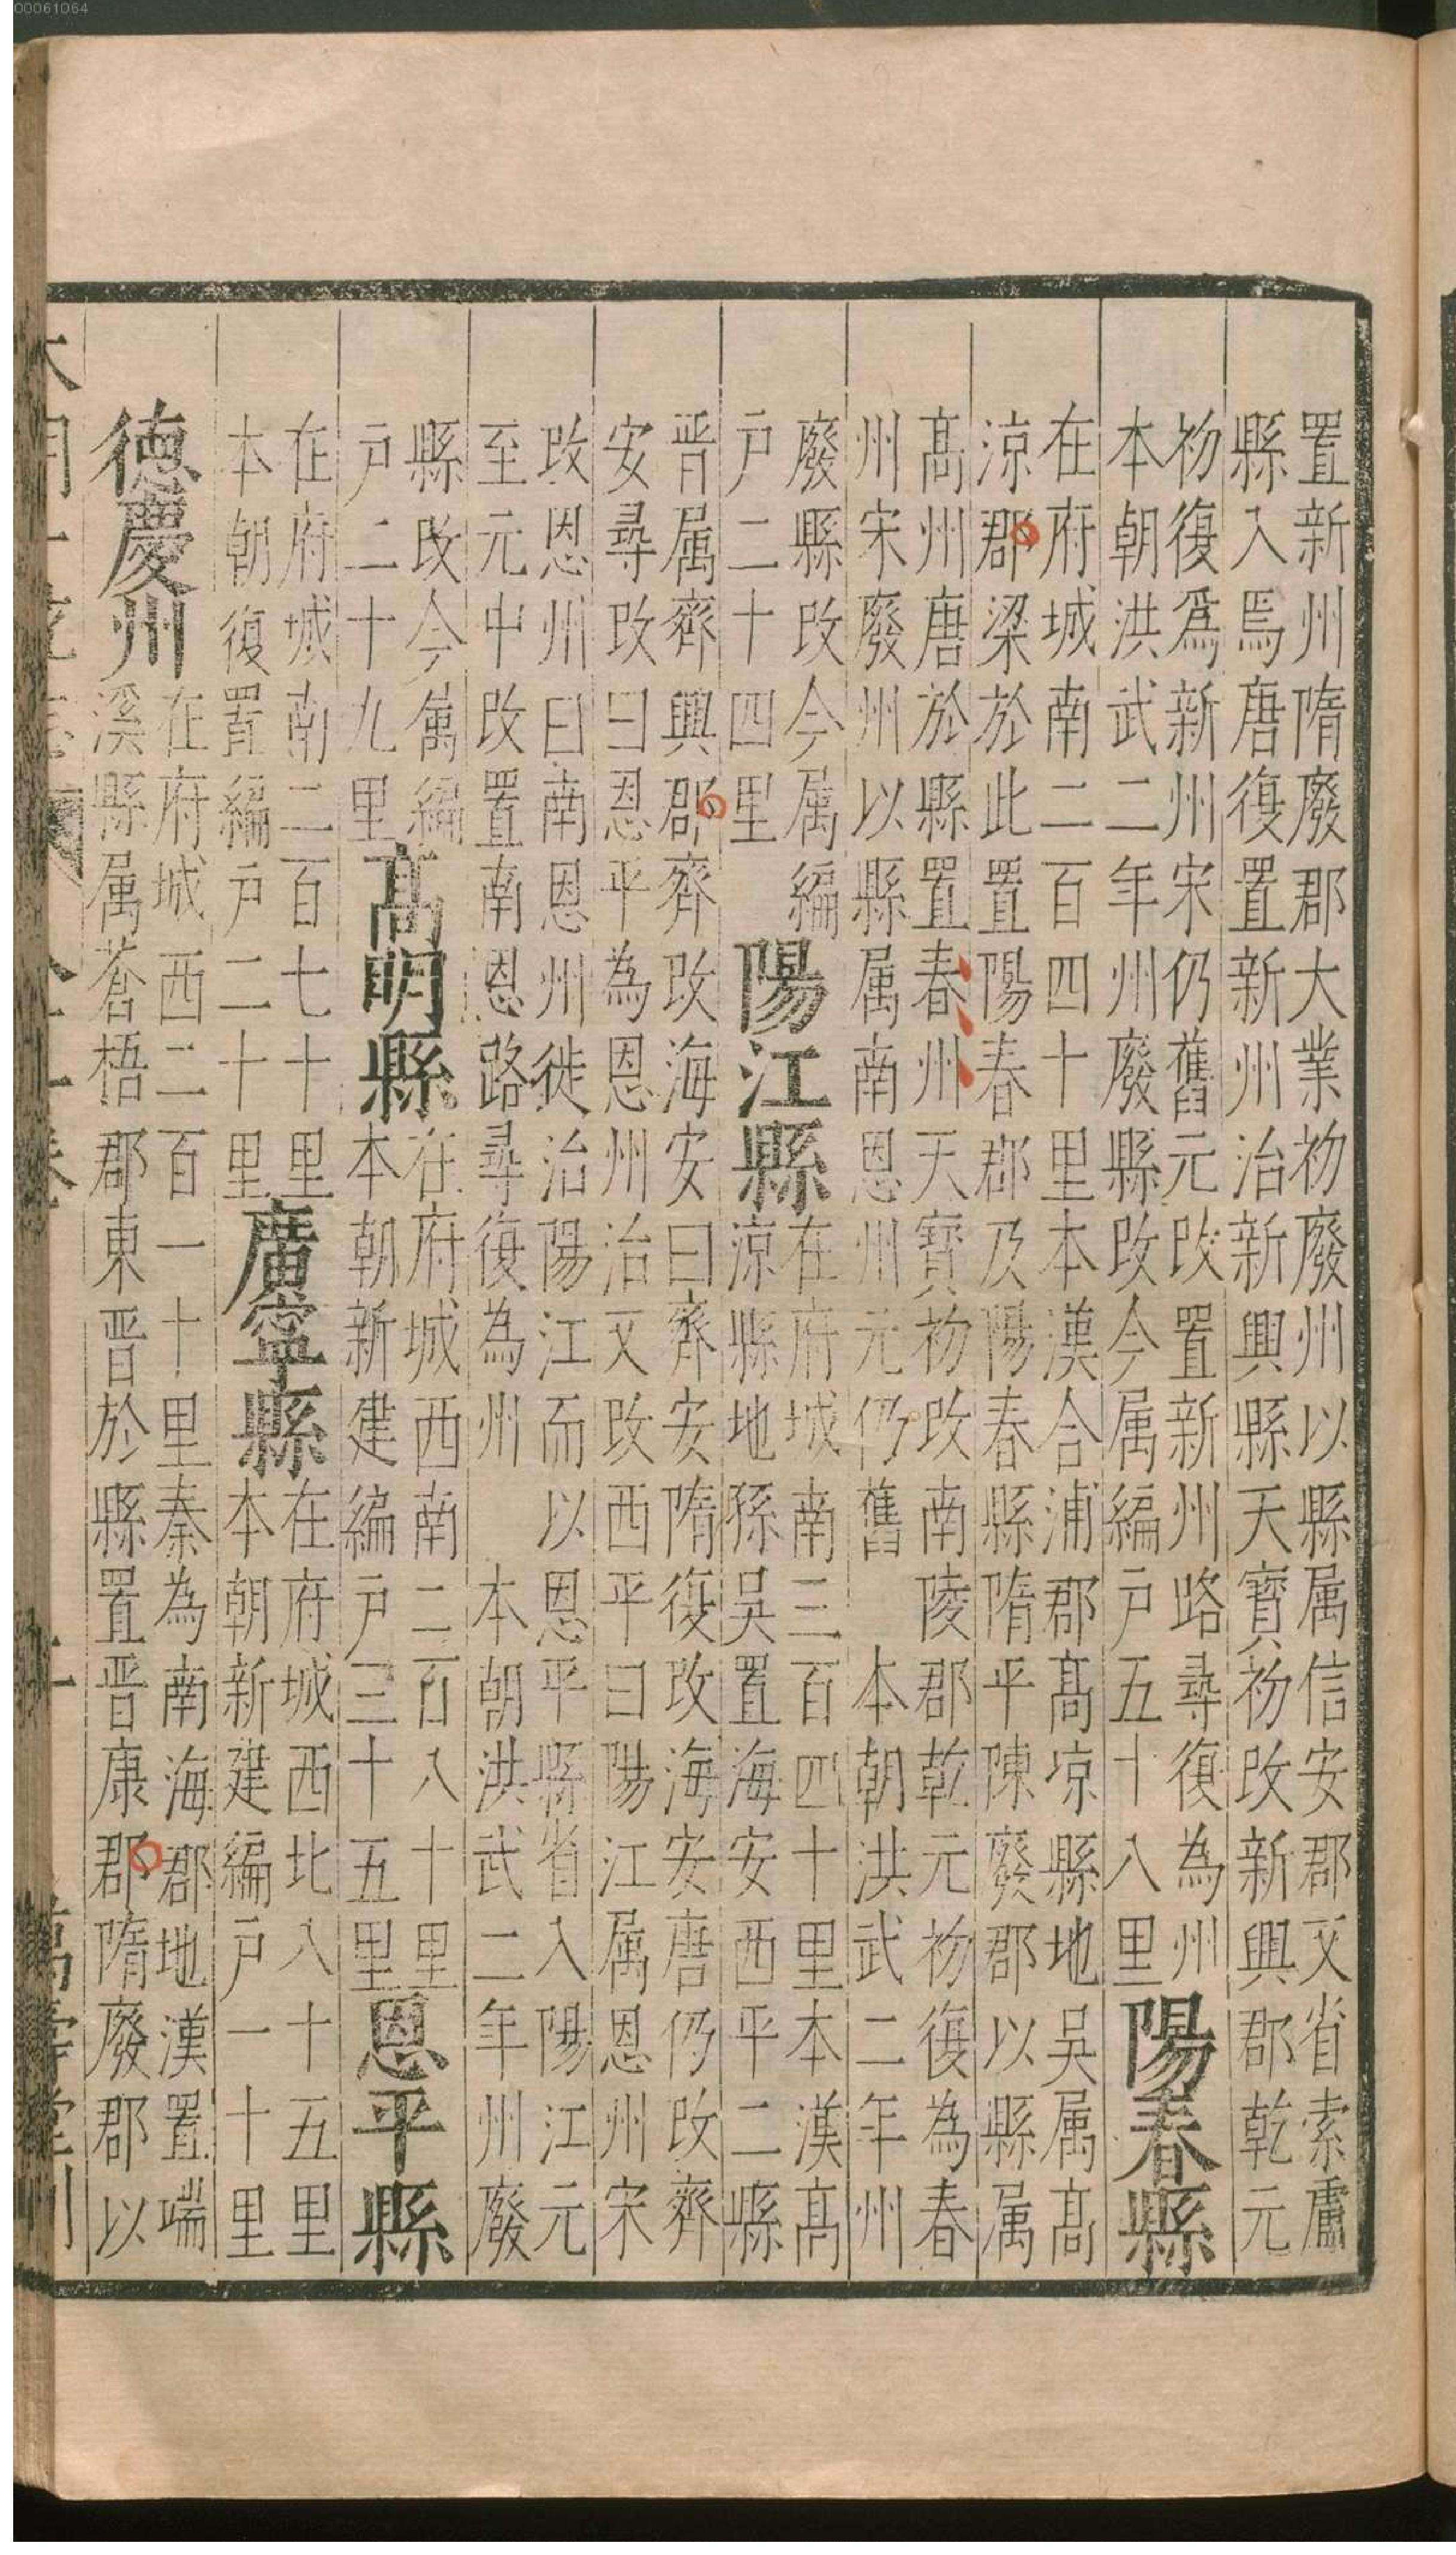 00061064
置新州隋廢郡大業初廢州以縣属信安郡又省索盧
縣入焉唐復置新州治新興縣天寳初改新興郡乾元
初復爲新州宋仍舊元改置新州路尋復為州
本朝洪武二年州廢縣改今属編户五十八里
陽春縣
在府城南二百四十里本漢合浦郡髙凉縣地吳属髙
涼郡梁於此置陽春郡及陽春縣隋平陳廢郡以縣属
髙州唐於縣置春州天寳初改南陵郡乾元初復為春
州宋廢州以縣属南恩州元仍舊 本朝洪武二年州
廢縣改今属編
户二十四里
陽江縣
在府城南三百四十里本漢髙
涼縣地孫吳置海安西平二縣
晋属齊興郡齊改海安曰齊安隋復改海安唐仍改齊
安尋改曰恩平為恩州治又改西平曰陽江属恩州宋
改恩州曰南恩州徙治陽江而以恩平縣省入陽江元
至元中改置南恩路尋復為州 本朝洪武二年州廢
縣改今属編
户二十九里
髙明縣
在府城西南二百八十里
本朝新建編户三十五里
恩平縣
在府城南二百七十里
本朝復置編户二十里
廣寧縣
在府城西北八十五里
本朝新建編户一十里
德慶州
在府城西二百一十里秦為南海郡地漢置端
溪縣属蒼梧郡東晋於縣置晋康郡隋廢郡以